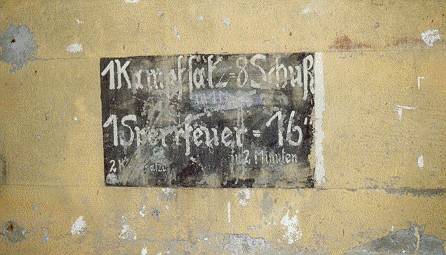 1 Kampfsatz = 8 Schuß
1 Sperrfeuer = 16 "
in 2 Minuten